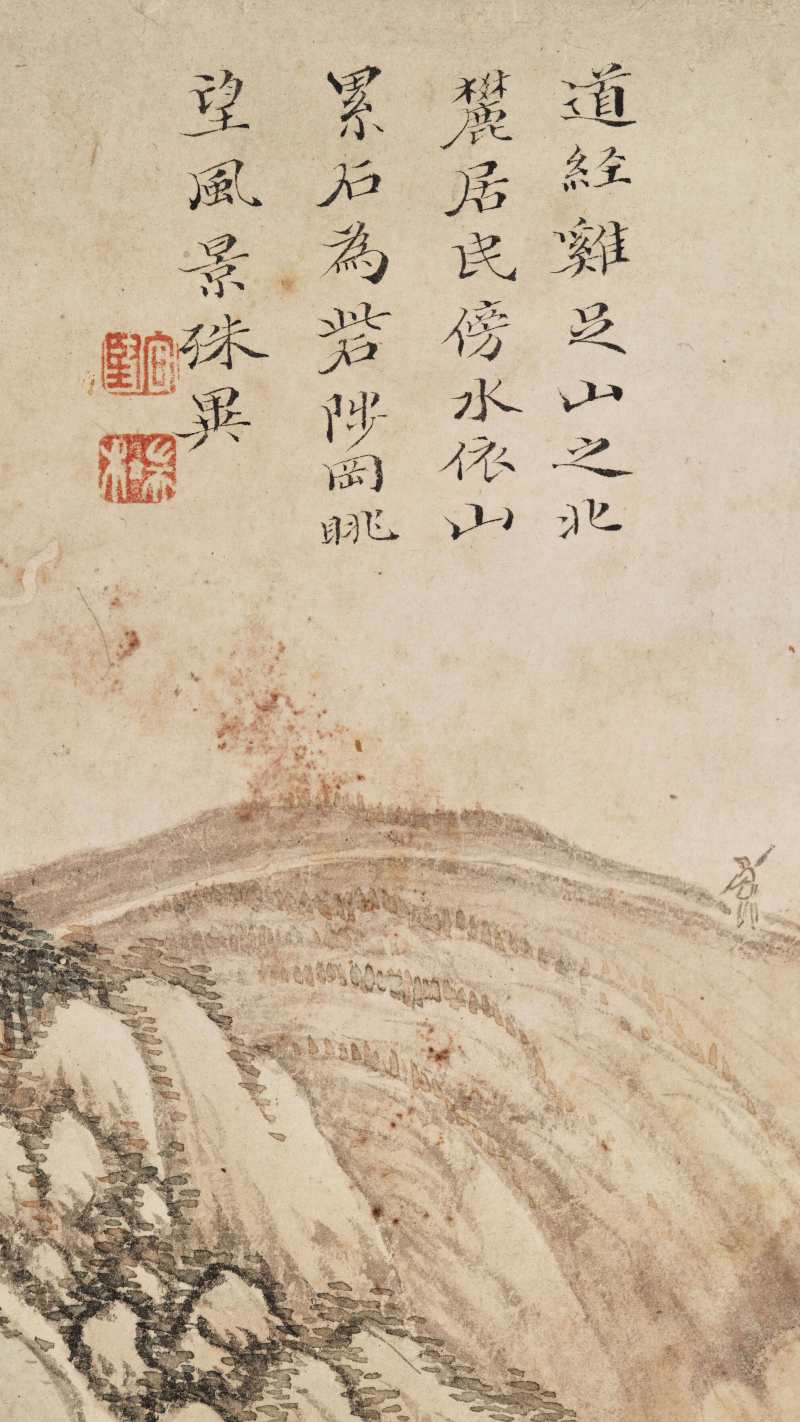 道經雞足山之北
麓居民傍水依山
累石為砦陟岡眺
望風景殊異